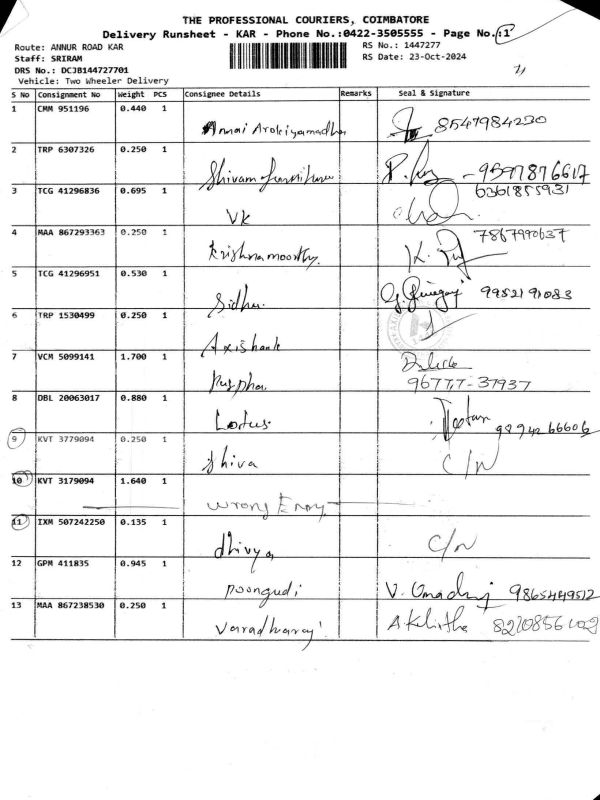 THE PROFESSIONAL COURIERS, COIMBATORE
Delivery Runsheet - KAR - Phone No.:0422-3505555 - Page No.:1
Route: ANNUR ROAD KAR
RS No.: 1447277
Staff: SRIRAM
RS Date: 23-Oct-2024
DRS No.: DCJB144727701
Vehicle: Two Wheeler Delivery
S No Consignment No Weight PCS Consignee Details Remarks Seal & Signature
1 CMM 951196 0.440 1
Annai Arokiyamadha 8547984230
2 TRP 6307326 0.250 1
Shivam furniture - 9597876617
3 TCG 41296836 0.695 1 6361855931
VK
4 MAA 867293363 0.250 1 7867990637
Krishnamoorthy.
5 TCG 41296951 0.530 1
Sidha. 9952191083
6 TRP 1530499 0.250 1
Axisbank
7 VCM 5099141 1.700 1
Puspha 96777-37937
8 DBL 20063017 0.880 1
Lotus 9894266606
9 KVT 3779094 0.250 1
Shiva C/N
10 KVT 3179094 1.640 1
Wrong Entry
11 IXM 507242250 0.135 1
dhivya C/N
12 GPM 411835 0.945 1
Poongudi 9865449512
13 MAA 867238530 0.250 1
Varadharaj A.